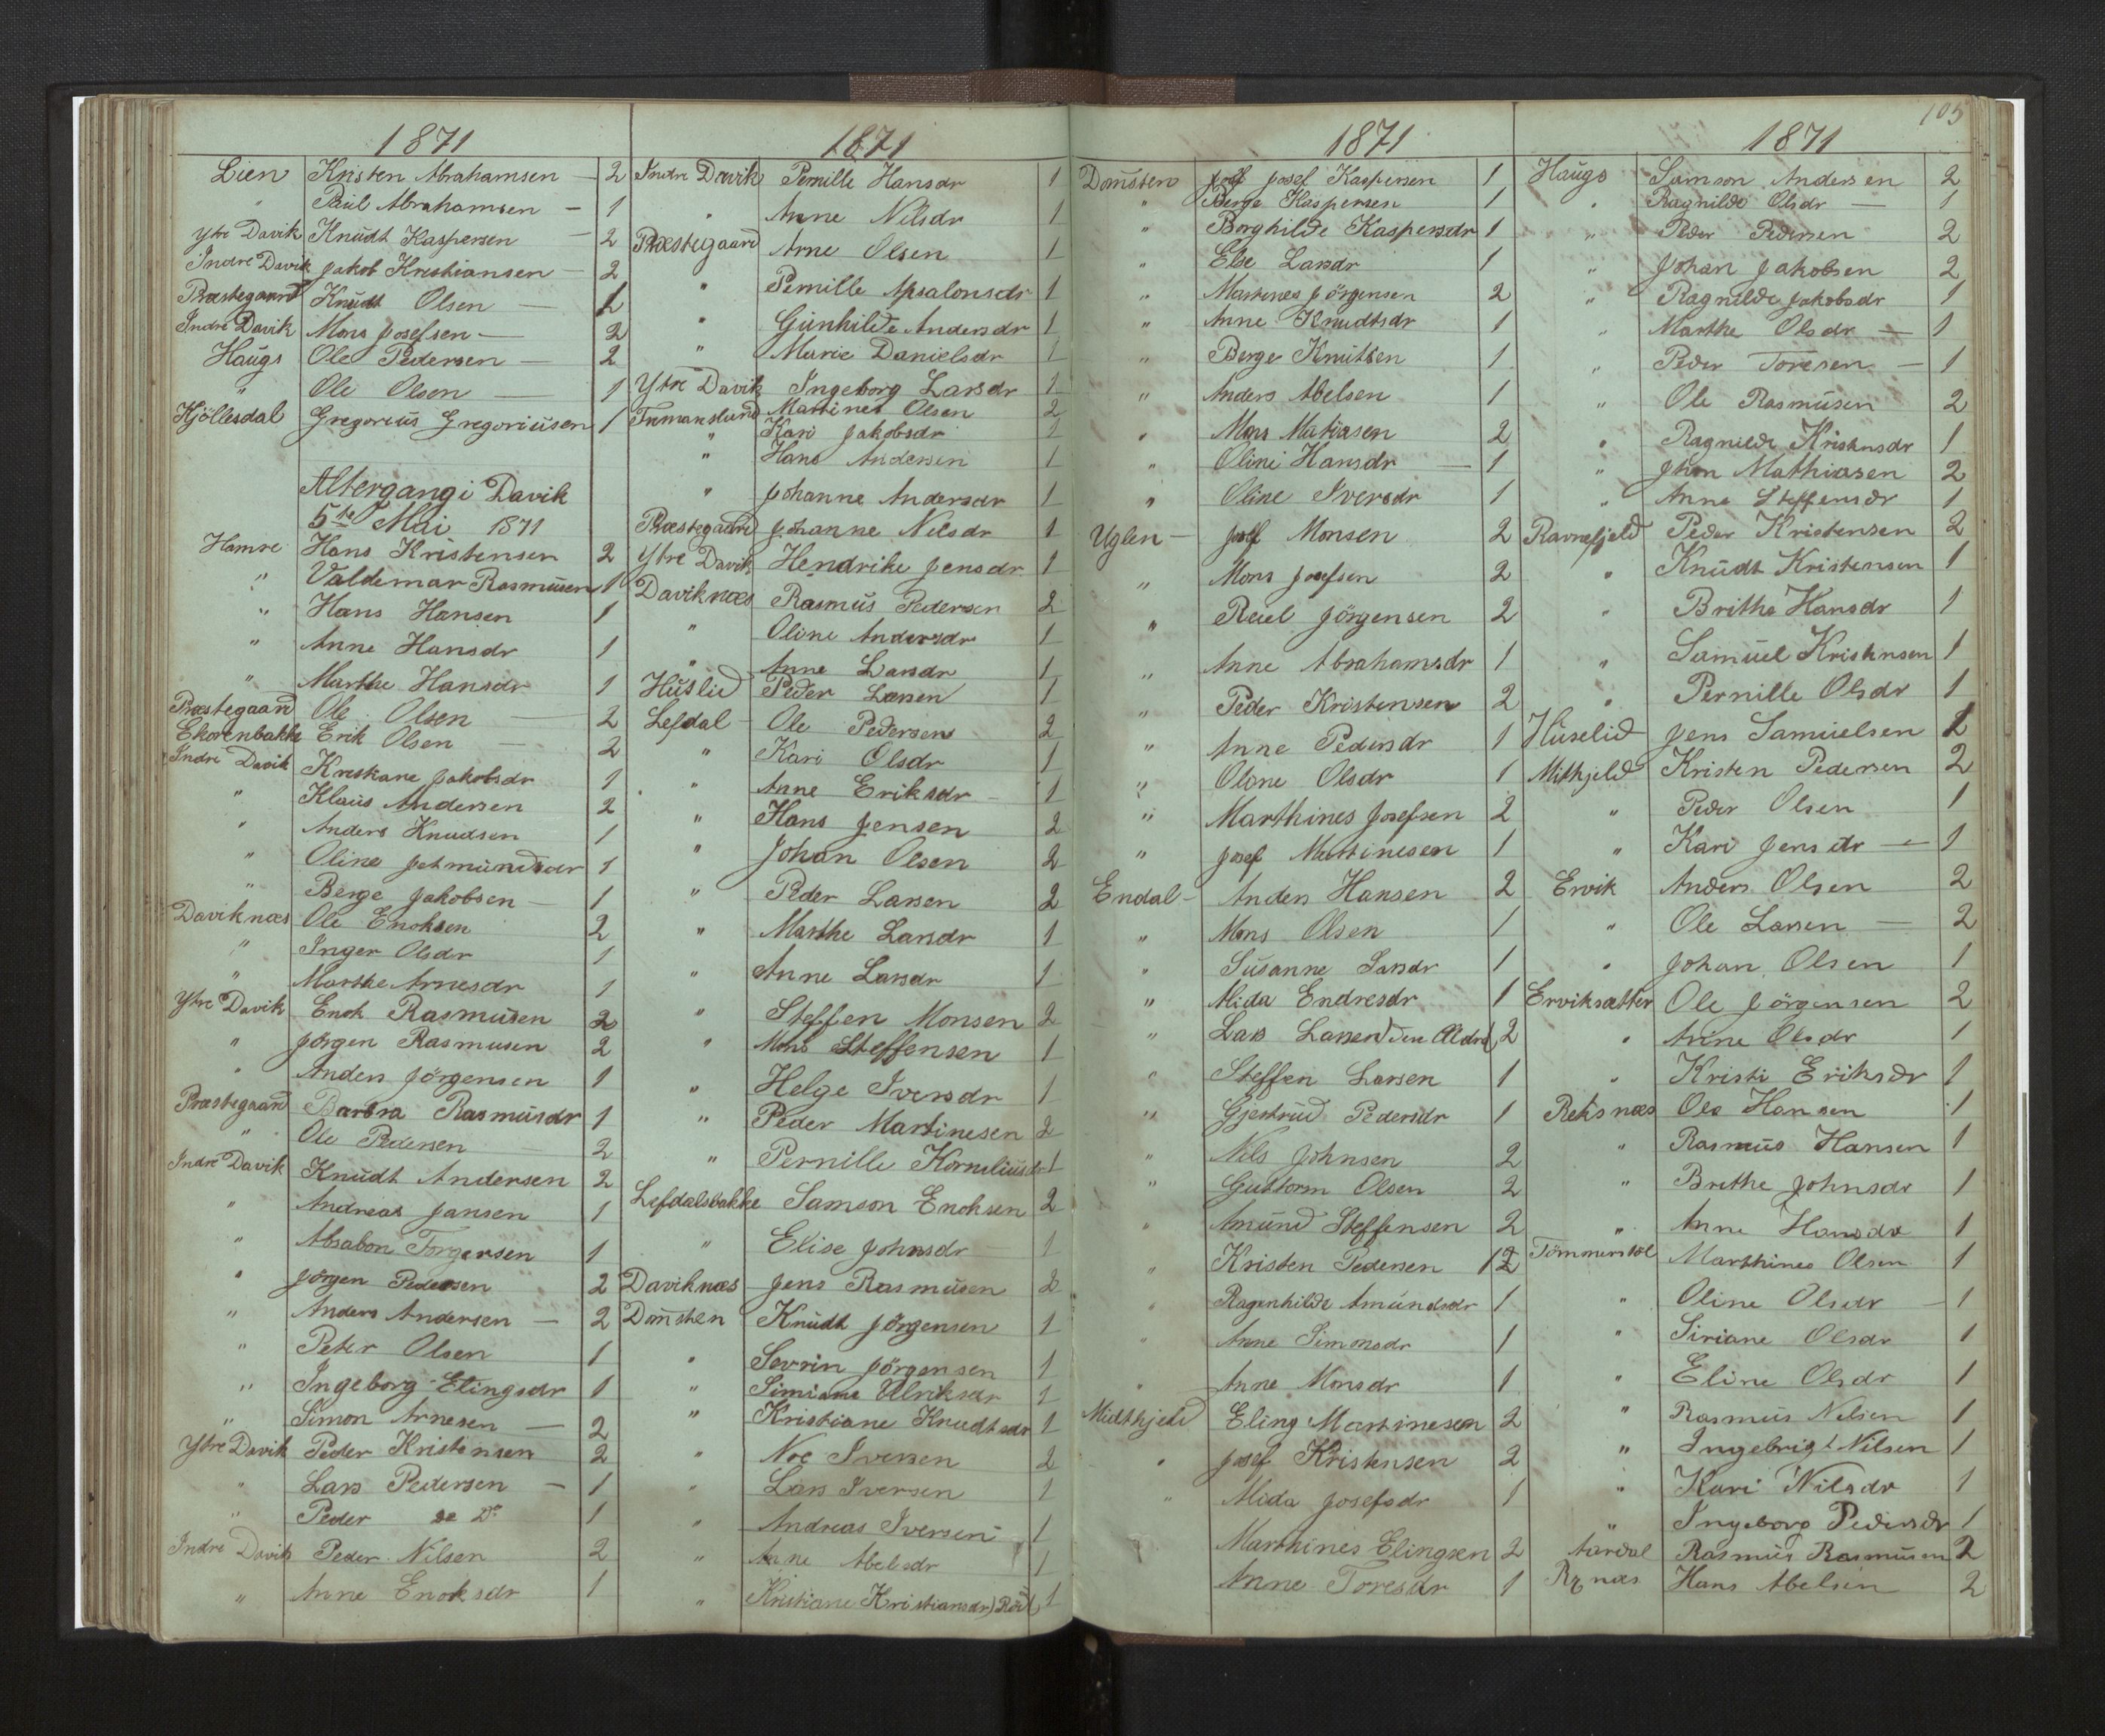 105
1871
Lien Kristen Abrahamsen — 2
" Paul Abrahamsen — 1
Ytre Davik Knudt Kaspersen — 2
Indre Davik Jakob Kristiansen — 2
Præstegaard Knudt Olsen — 2
Indre Davik Mons Josefsen — 2
Haugs Ole Pedersen — 2
" Ole Olsen — 1
Hjöllesdal Gregorius Gregoriusen 1
Altergang i Davik
5te Mai 1871
Hamre Hans Kristensen 2
" Valdemar Rasmusen 1
" Hans Hansen 1
" Anne Hansdr 1
" Marthe Hansdr 1
Præstegaard Ole Olsen — 2
Ekorenbakke Erik Olsen — 2
Indre Davik Kristiane Jakobsdr 1
" Klaus Andersen 2
" Anders Knudsen 1
" Oline Jetmundsdr 1
" Berge Jakobsen — 1
Daviknæs Ole Enoksen 2
" Inger Olsdr 1
" Marthe Arnesdr 1
Ytre Davik Enok Rasmusen 2
" Jörgen Rasmusen 2
" Anders Jörgensen 1
Præstegaard Barbra Rasmusdr 1
" Ole Pedersen 2
Indre Davik Knudt Andersen 2
" Andreas Jansen 1
" Absabon Torgersen 1
" Jörgen Pedersen 2
" Anders Andersen — 2
" Peter Olsen 1
" Ingeborg Elingsdr 1
" Simon Arnesen — 2
Ytre Davik Peder Kristensen 2
" Lars Pedersen — 1
" Peder Do 1
Indre Davik Peder Nilsen 2
" Anne Enoksdr 1
1871
Indre Davik Pernille Hansdr 1
" Anne Nilsdr 1
Præstegaard Arne Olsen 1
" Pernille Apsalonsdr 1
" Gunhilde Andersdr 1
" Marie Danielsdr 1
Ytre Davik Ingeborg Larsdr 1
Martines Olsen 2
" Kari Jakobsdr 1
" Hans Andersen 1
" Johanne Andersdr 1
Præstegaard Johanne Nilsdr 1
Ytre Davik Hendrike Jensdr 1
Daviknæs Rasmus Pedersen 2
" Oline Andersdr 1
" Anne Larsdr 1
Huslid Peder Larsen 1
Lefdal Ole Pedersen 2
" Kari Olsdr 1
" Anne Eriksdr — 1
" Hans Jensen 2
" Johan Olsen 2
" Peder Larsen 2
" Marthe Larsdr 1
" Anne Larsdr 1
" Steffen Monsen 2
" Mons Steffensen 1
" Helge Iversdr 1
" Peder Martinesen 2
" Pernille Korneliusdr 1
Lefdalsbakke Samson Enoksen 2
" Elise Johnsdr 1
Daviknæs Jens Rasmusen 2
Domsten Knudt Jörgensen 1
" Sevrin Jörgensen 1
" Simiane Ulriksdr 1
" Kristiane Knudtsdr 1
" Noe Iversen 2
" Lars Iversen 1
" Andreas Iversen 1
" Anne Abelsdr 1
" Kristiane Kristiansdr) 1
1871
Domsten Josef Kaspersen 1
" Berge Kaspersen 1
" Borghilde Kaspersdr 1
" Else Larsdr 1
" Martenes Jörgensen 2
" Anne Knudtsdr 1
" Berge Knutsen 1
" Anders Abelsen 1
" Mons Matiasen 2
" Oline Hansdr — 1
" Oline Iversdr 1
Uglen — Josef Monsen 2
" Mons Josefsen 2
" Jörgensen 2
" Anne Abrahamsdr 1
" Peder Kristensen 2
" Anne Pedersdr 1
" Olone Olsdr 1
" Marthines Josefsen 2
" Josef Martinesen 1
Endal — Anders Hansen 2
" Mons Olsen 1
" Susanne Larsdr 1
" Mida Endresdr 1
" Lars Larsen) den Aldre( 2
" Steffen Larsen 1
" Gjertrud Pedersdr 1
" Nils Johnsen 2
" Guttorm Olsen 2
" Amund Steffensen 2
" Kristen Pedersen 2
" Ragenhilde Amundsdr 1
" Anne Simonsdr 1
" Anne Monsdr 1
Midthjeld Eling Martinesen 2
" Josef Kristensen 2
" Mida Josefsdr 1
Marthines Elingsen 2
Anne Toresdr 1
1871
Haugs Samson Andersen 2
" Ragnilde Olsdr — 1
" Peder Pedersen 2
" Johan Jakobsen 2
" Ragnilde Jakobsdr 1
" Marthe Olsdr — 1
" Peder Toresen — 1
" Ole Rasmusen 2
" Ragnilde Kristensdr 1
" Jhon Mathiasen 2
" Anne Steffensdr 1
Ravnefjeld Peder Kristensen 2
" Knudt Kristensen 1
" Brithe Hansdr 1
" Samuel Kristensen 1
" Pernille Olsdr 1
Huselid Jens Samuelsen 2
Mithjeld Kristen Pedersen 2
" Peder Olsen 1
" Kari Jensdr — 1
Ervik Anders Olsen 2
" Ole Larsen — 2
" Johan Olsen 1
Erviksætter Ole Jörgensen 2
" Anne Olsdr 1
" Kristi Eriksdr 1
Reksnæs Ole Hansen 1
" Rasmus Hansen 1
" Brethe Johnsdr 1
" Anne Hansdr 1
Tömmerstöl Marthines Olsen 1
" Oline Olsdr — 1
" Siriane Olsdr 1
" Eline Olsdr 1
" Rasmus Nilsen 1
" Ingebrigt Nilsen 1
" Kari Nilsdr 1
" Ingeborg Pedersdr 1
Aardal Rasmus Rasmusen 2
Hans Abelsen 2